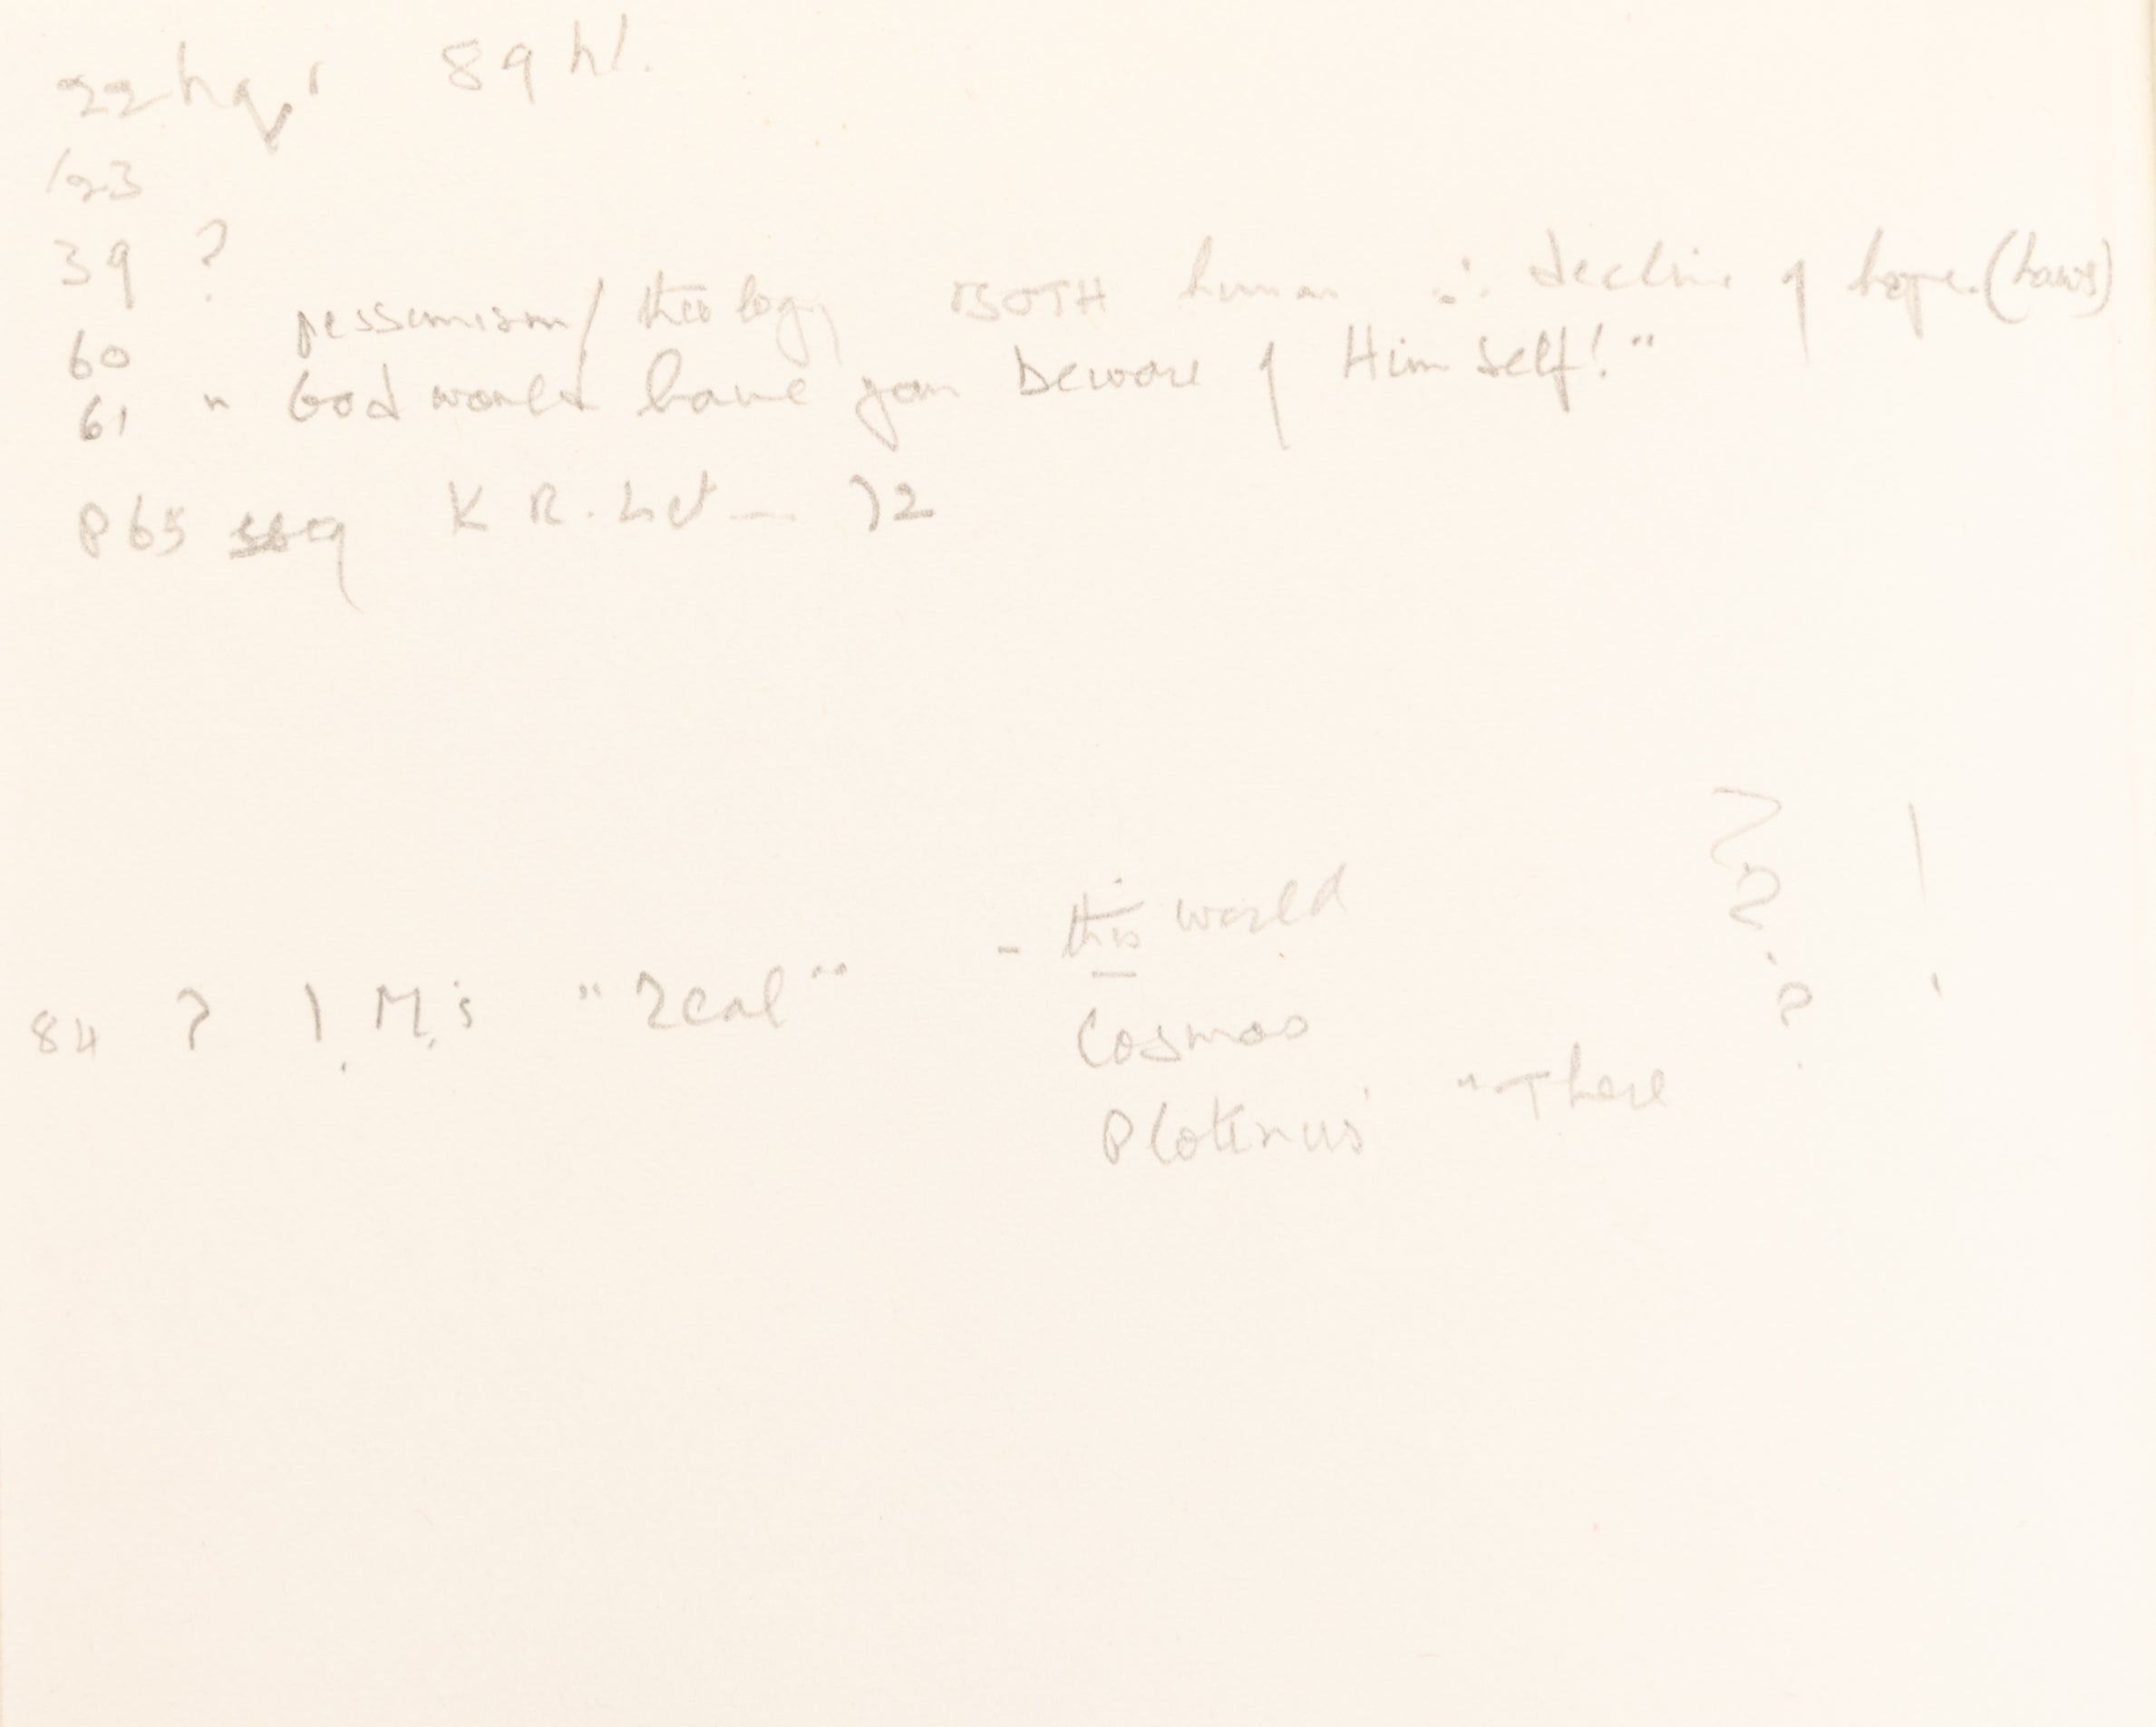 22 89
/23
39 ?
60 pessimism/theology BOTH human ∴ decline of hope. (laws)
61 " God would have you beware of Himself!"
P 65 sq K R. Let — )2
84 ? I. M.'s "real" - this world
Cosmos ?
Plotinus' "There